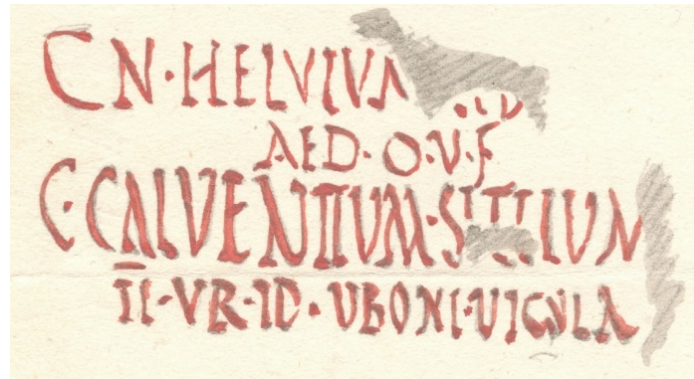 CN·HELVIUM
AED·O·V·F
C·CALVENTIUM·SITTIUM
II·VR·ID·UBONI·VICULA